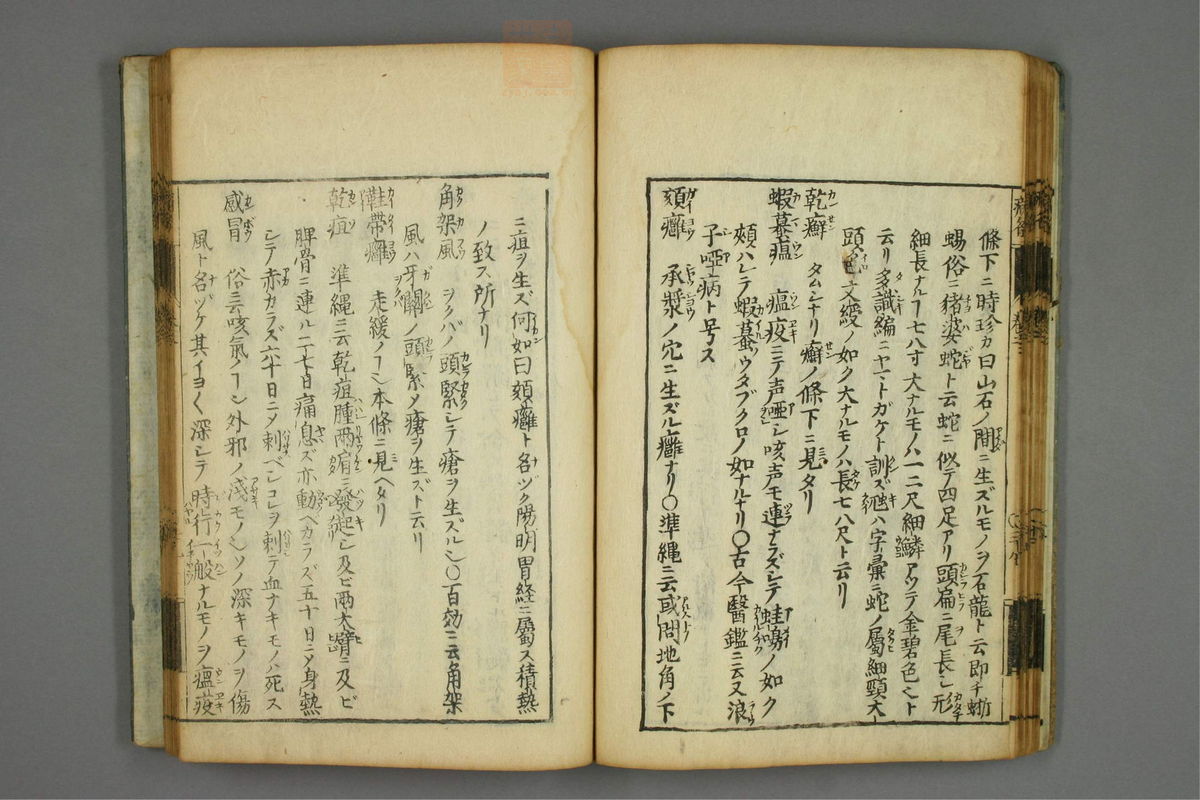 條下ニ時珍カ曰山石ノ間ニ生ズルモノヲ石龍ト云即チ蜥
蜴俗ニ猪婆蛇ト云蛇ニ似テ四足アリ頭扁ニ尾長シ形
細長ナルヿ七八寸大ナルモノハ一二尺細鱗アツテ金碧色也ト
云リ多識編ニヤマトガケト訓ズ虺ハ字彙ニ蛇ノ屬細頸大
頭色文綬ノ如ク大ナルモノハ長七八尺ト云リ
乾癬 タムシナリ癬ノ條下ニ見タリ
蝦蟇瘟 瘟疫ニテ声啞シ咳声モ連ナラズシテ蛙鳴ノ如ク
頰ハレテ蝦蟇ウタブクロノ如ナルナリ〇古今醫鑑ニ云又浪
子啞病ト号ス
頦癰 承漿ノ穴ニ生ズル癰ナリ〇準繩ニ云或問地角ノ下
ニ疽ヲ生ズ何如曰頦癰ト名ヅク陽明胃経ニ屬ス積熱
ノ致ス所ナリ
角架風 ヲクバノ頭緊シテ瘡ヲ生ズル也〇百効ニ云角架
風ハ牙關ノ頭緊メ瘡ヲ生ズト云リ
鞋帶癰 走緩ノヿ也本條ニ見ヘタリ
乾疽 準繩ニ云乾疽腫兩肩ニ發起シ及ビ兩大臂ニ及ビ
脾骨ニ連ル二七日痛息ズ亦動ヘカラズ五十日ニメ身熱
シテ赤カラズ六十日ニメ刺ベシコレヲ刺テ血ナキモノハ死ス
感冒 俗ニ云咳氣ノヿ也外邪ノ淺モノ也ソノ深キモノヲ傷
風ト名ヅケ其イヨ〱深シテ時行一般ナルモノヲ瘟疫